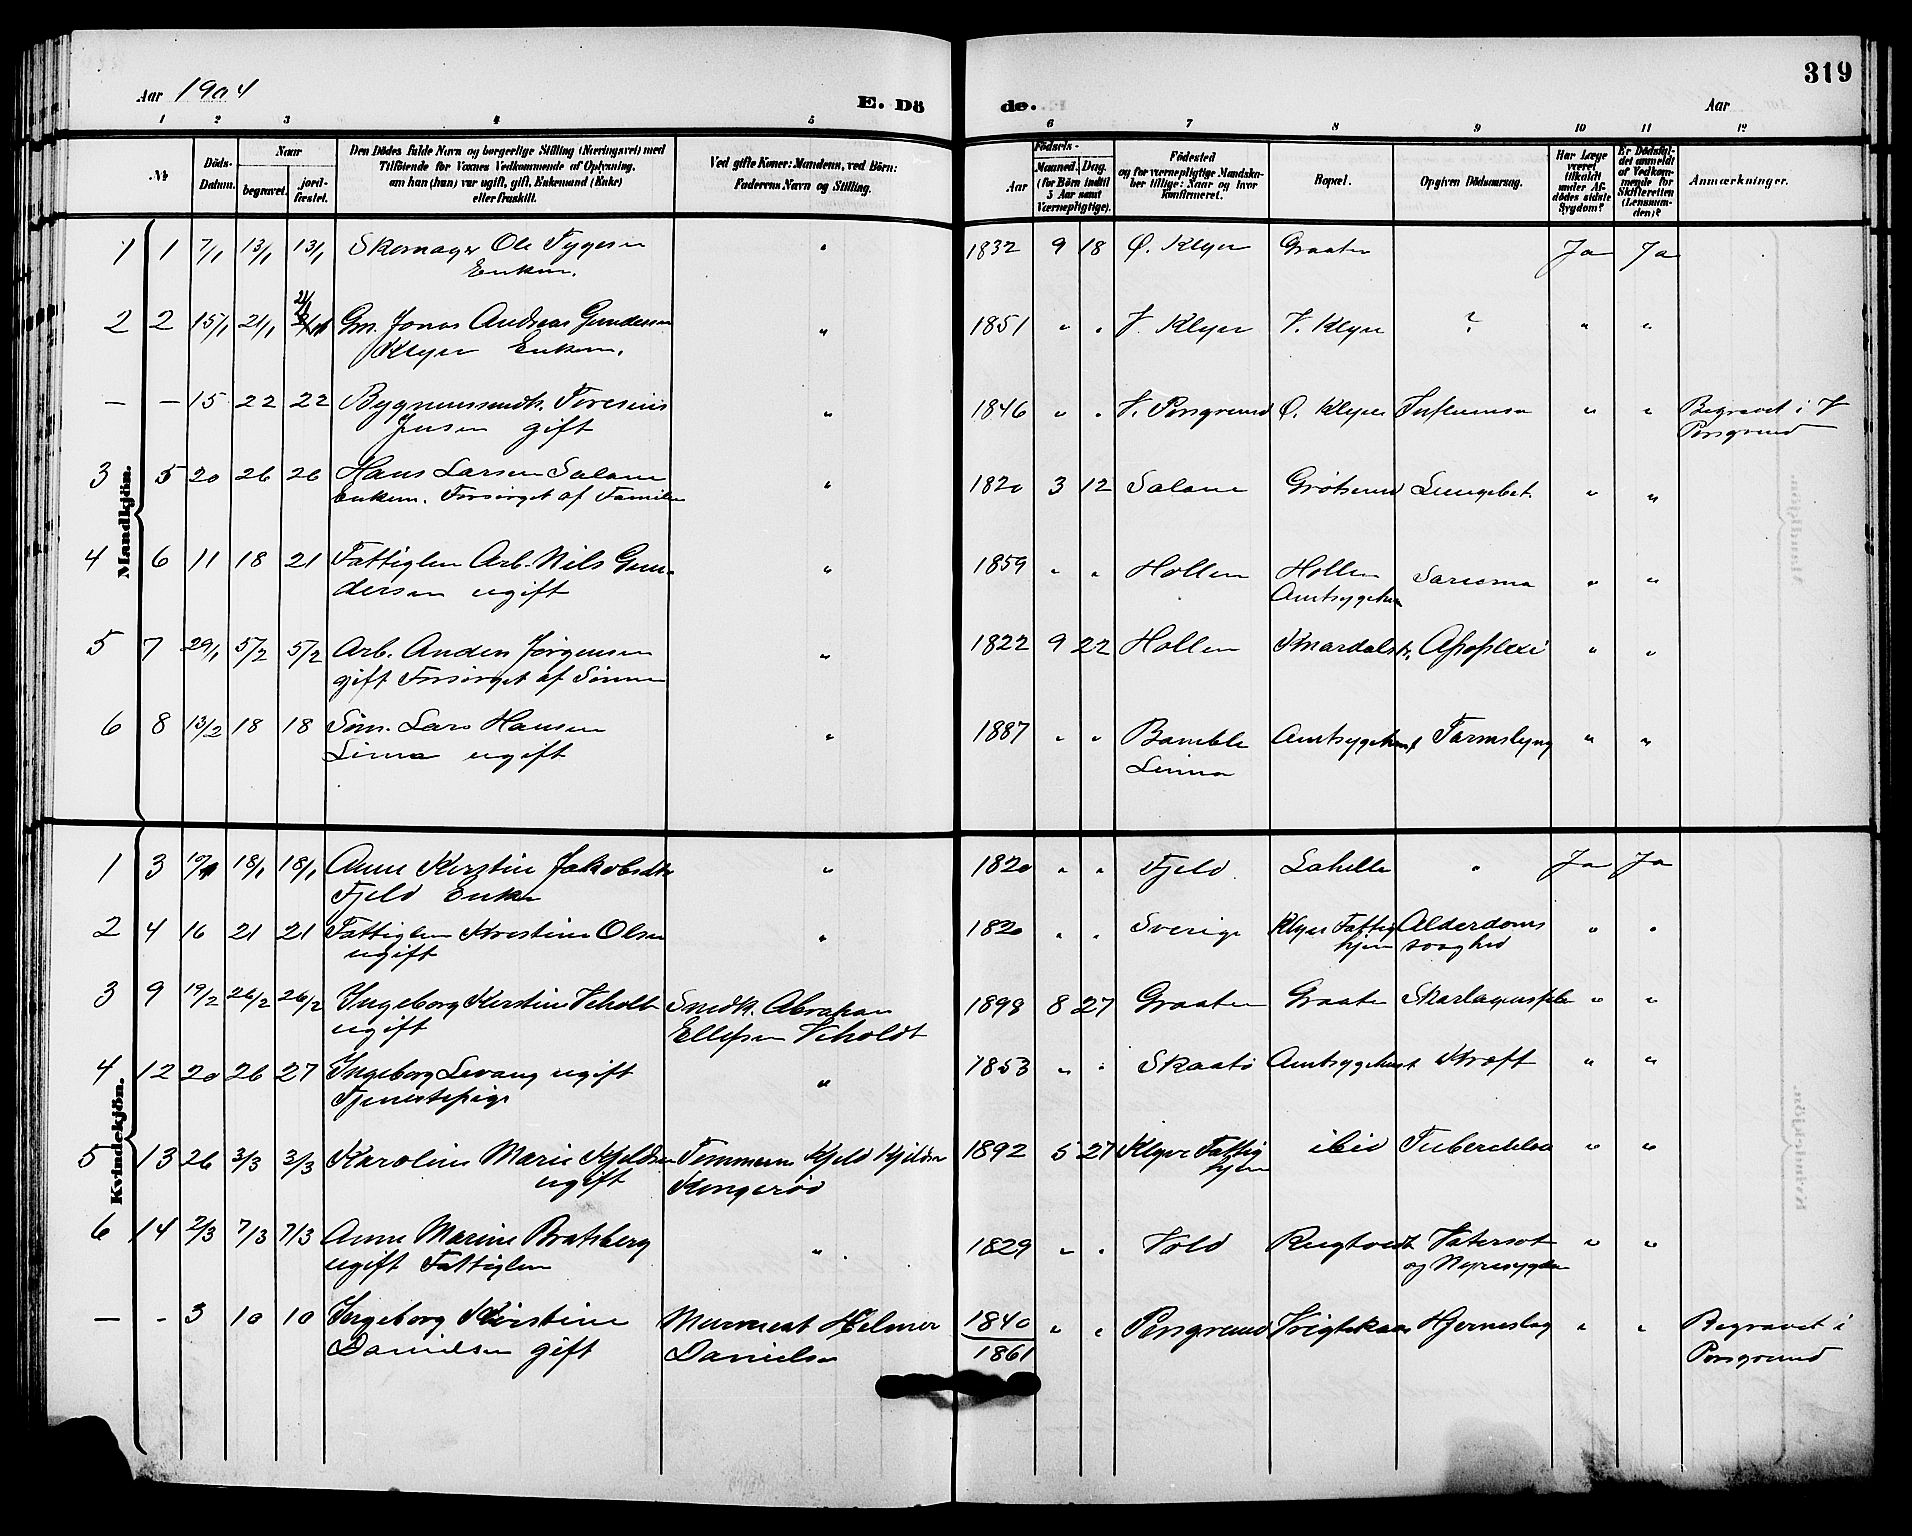 319
Aar 1904 E. Dö de. Aar
1 2 3 4 5 6 7 8 9 10 11 12
Nr
Döds-
Datum.
Naar
begravet.
jord-
fæstet.
Den Dödes fulde Navn og borgerlige Stilling (Næringsvei) med
Tilföiende for Voxnes Vedkommende af Oplysning,
om han (hun) var ugift, gift, Enkemand (Enke)
eller fraskilt.
Ved gifte Koner: Mandens, ved Börn:
Faderens Navn og Stilling.
Födsels-
Aar
Maaned. Dag.
(for Börn indtil
5 Aar samt
Værnepligtige).
Födested
og for værnepligtige Mandska-
ber tillige: Naar og hvor
konfirmeret.
Bopæl.
Opgiven Dödsaarsag.
Har Læge
været
tilkaldt
under Af-
dödes sidste
Sygdom?
Er Dödsfal-
det anmeldt
af Vedkom-
mende for
Skifteretten
(Lensman-
den)?
Anmærkninger.
Mandkjön.
1 1 7/1 13/1 13/1 Skomager Ole Tygesen " 1832 9 18 Ø. Klyve Graaten Ja Ja
Enkem.
2 2 15/1 21/1 Gm. Jonas Andreas Gundersen " 1851 " " V. Klyve V. Klyve ? " "
Klyve Enkem.
— — 15 22 22 Bygnmsnedk. Toresius " 1846 " " V. Porsgrund Ø. Klyve " " Begravet i V
Jensen gift Porsgrund
3 5 20 26 26 Hans Larsen Salane " 1820 3 12 Salane Lungebet. " "
Enkem. Forsørget af Familien
4 6 11 18 21 Fattiglem Arb. Nils Gun- " 1859 " " Hollen Hollen Sarcoma " "
dersen ugift Amtsygehus
5 7 29/1 5/2 5/2 Arb. Anders Jørgensen " 1822 9 22 Hollen Knardalstr. Apoplexi " "
gift Forsørget af Sønnen
6 8 13/2 18 18 Søm. Lars Hansen " 1887 " " Bamble Amtsygehus Tarmslyng " "
Linna ugift Linna
Kvindekjön.
1 3 18/1 18/1 Anne Kirstine Jakobsdtr " 1820 " " Fjeld Lahelle " Ja Ja
Fjeld Enke
2 4 16 21 21 Fattiglem Kristine Olsen " 1820 " " Sverige Klyve Fattig Alderdoms " "
ugift hjem svaghed
3 9 19/2 26/2 26/2 Ingeborg Kirstine Veholt Snedk. Abraham 1898 8 27 Graaten Graaten Skarlagensfeber " "
ugift Ellefsen Veholdt
4 12 20 26 27 Ingeborg Levang ugift " 1853 " " Skaatø Amtsygehuset Kræft " "
Tjenestepige
5 13 26 3/3 3/3 Karoline Marie Kjeldsen Tømmerm Kjeld Kjeldsen 1892 5 27 Klyve Fattig ibid Tuberculose " "
ugift Kongerød hjem
6 14 2/3 7/3 7/3 Anne Marine Bratsberg " 1829 " " Vold Rugtvedt Vatersot " "
ugift Fattiglem og Nyresygdom
— - 3 10 10 Ingeborg Kirstine Murmest Helmer 1840 " " Porsgrund Hjerneslag " " Begravet i
Danielsen gift Danielsen 1861 Porsgrund